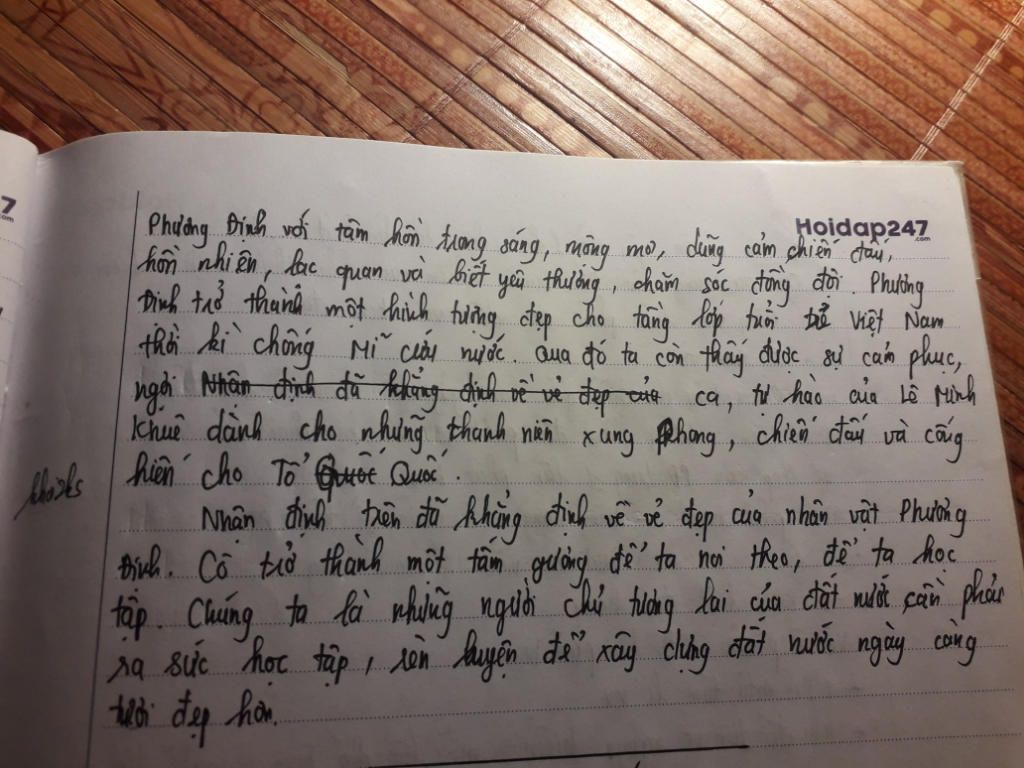 7
com
Hoidap247
.com
Phương Định với tâm hồn trong sáng, mộng mơ, dũng cảm chiến đấu,
hồn nhiên, lạc quan và biết yêu thương, chăm sóc đồng đội. Phương
Định trở thành một hình tượng đẹp cho tầng lớp tuổi trẻ Việt Nam
thời kì chống Mĩ cứu nước. Qua đó ta còn thấy được sự cảm phục,
ngợi Nhận định đã khẳng định về vẻ đẹp của ca, tự hào của Lê Minh
Khuê dành cho những thanh niên xung phong, chiến đấu và cống
hiến cho Tổ Quốc Quốc.
Nhận định trên đã khẳng định về vẻ đẹp của nhân vật Phương
Định. Cô trở thành một tấm gương để ta noi theo, để ta học
tập. Chúng ta là những người chủ tương lai của đất nước cần phải
ra sức học tập, rèn luyện để xây dựng đất nước ngày càng
tươi đẹp hơn.